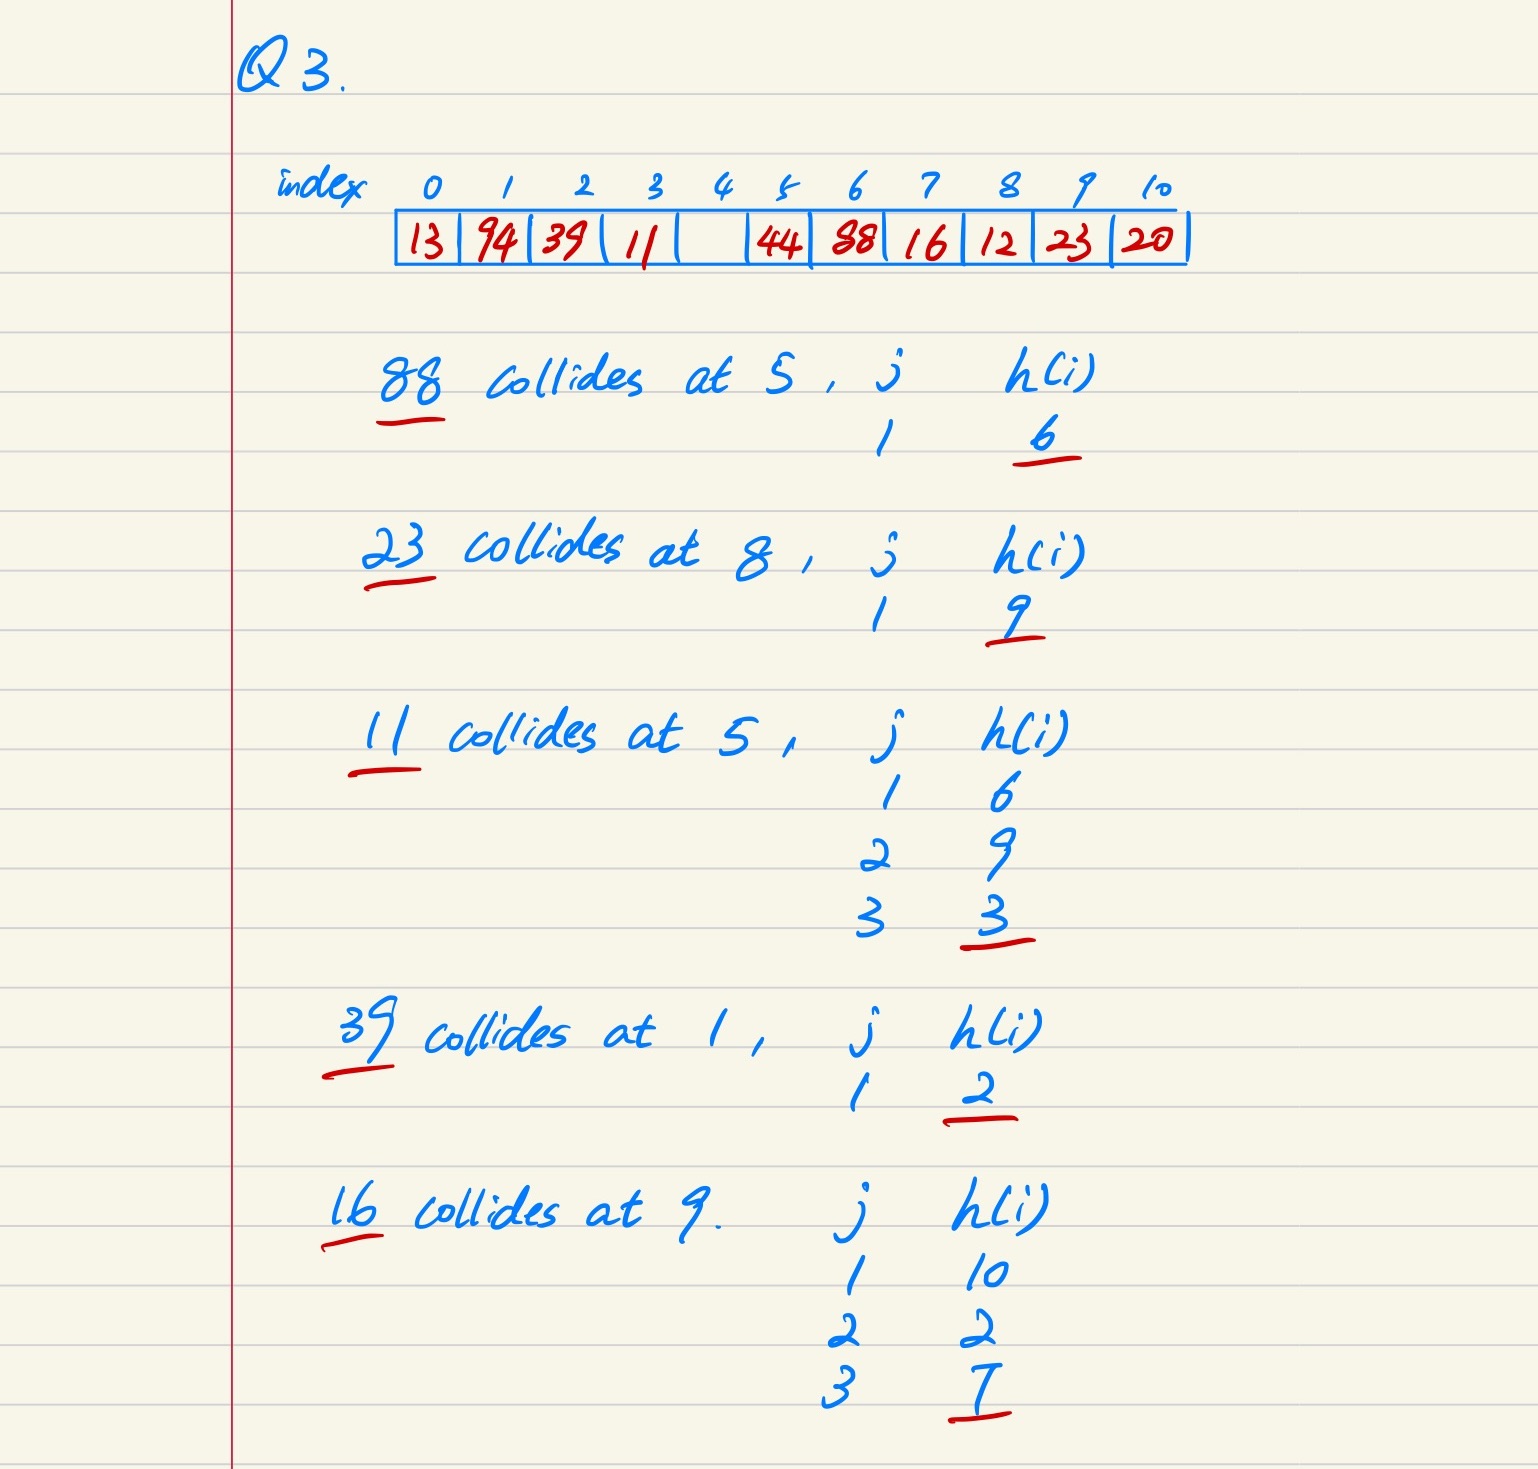 Q3.
index 0 1 2 3 4 5 6 7 8 9 10
13 94 39 11 44 88 16 12 23 20
88 collides at 5, j h(i)
1 6
23 collides at 8, j h(i)
1 9
11 collides at 5, j h(i)
1 6
2 9
3 3
39 collides at 1, j h(i)
1 2
16 collides at 9. j h(i)
1 10
2 2
3 7